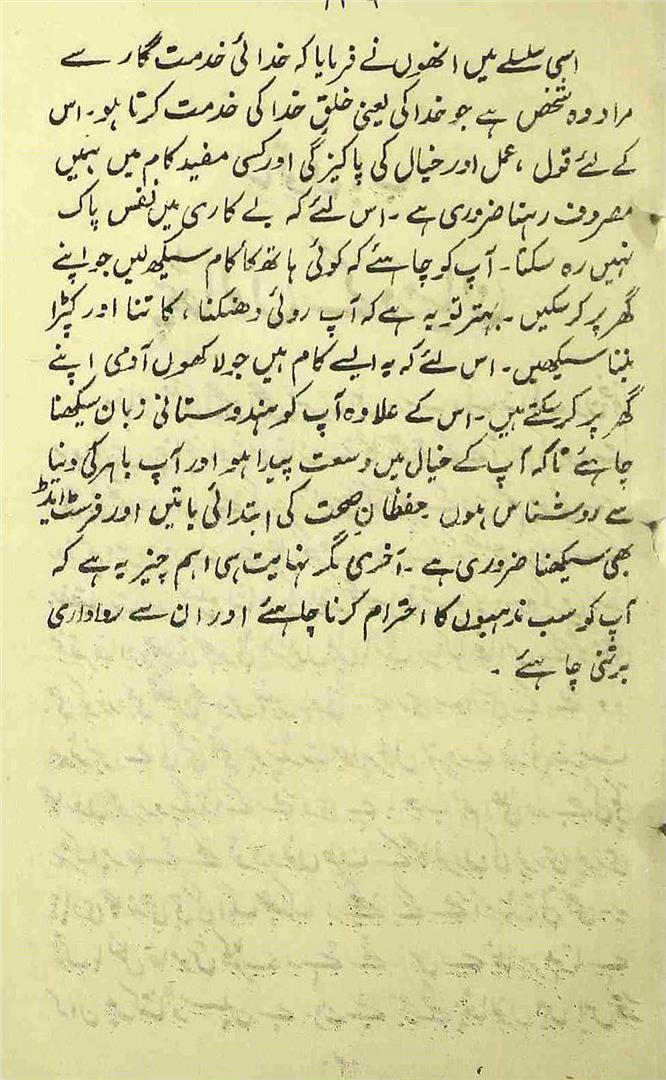 اسی سلسلے میں انھوں نے فرمایا کہ خدائی خدمت گار سے
مراد وہ شخص ہے جو خدا کی یعنی خلق خدا کی خدمت کرتا ہو۔ اس
کے لئے قول، عمل اور خیال کی پاکیزگی اور کسی مفید کام میں ہمیں
مصروف رہنا ضروری ہے۔ اس لئے کہ بے کاری میں نفس پاک
نہیں رہ سکتا۔ آپ کو چاہئے کہ کوئی ہاتھ کا کام سیکھ لیں جو اپنے
گھر پر کر سکیں۔ بہتر تو یہ ہے کہ آپ روئی دھنکنا، کاتنا اور کپڑا
بننا سیکھیں۔ اس لئے کہ یہ ایسے کام ہیں جو لاکھوں آدمی اپنے
گھر پر کر سکتے ہیں۔ اس کے علاوہ آپ کو ہندوستانی زبان سیکھنا
چاہئے تاکہ آپ کے خیال میں وسعت پیدا ہو اور آپ باہر کی دنیا
سے روشناس ہوں۔ حفظان صحت کی ابتدائی باتیں اور فرسٹ ایڈ
بھی سیکھنا ضروری ہے۔ آخری مگر نہایت ہی اہم چیز یہ ہے کہ
آپ کو سب مذہبوں کا احترام کرنا چاہئے اور ان سے رواداری
برتنی چاہئے۔